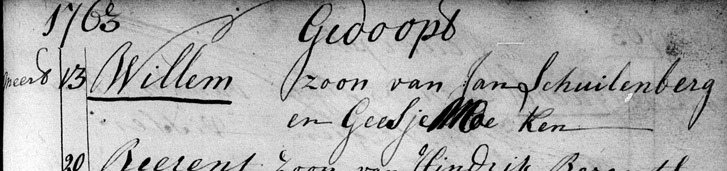 1763 Gedoopt
meert 13 Willem zoon van Jan Schuilenberg
en Geesje Moe Ken
20 Beerent zoon van Hindrik